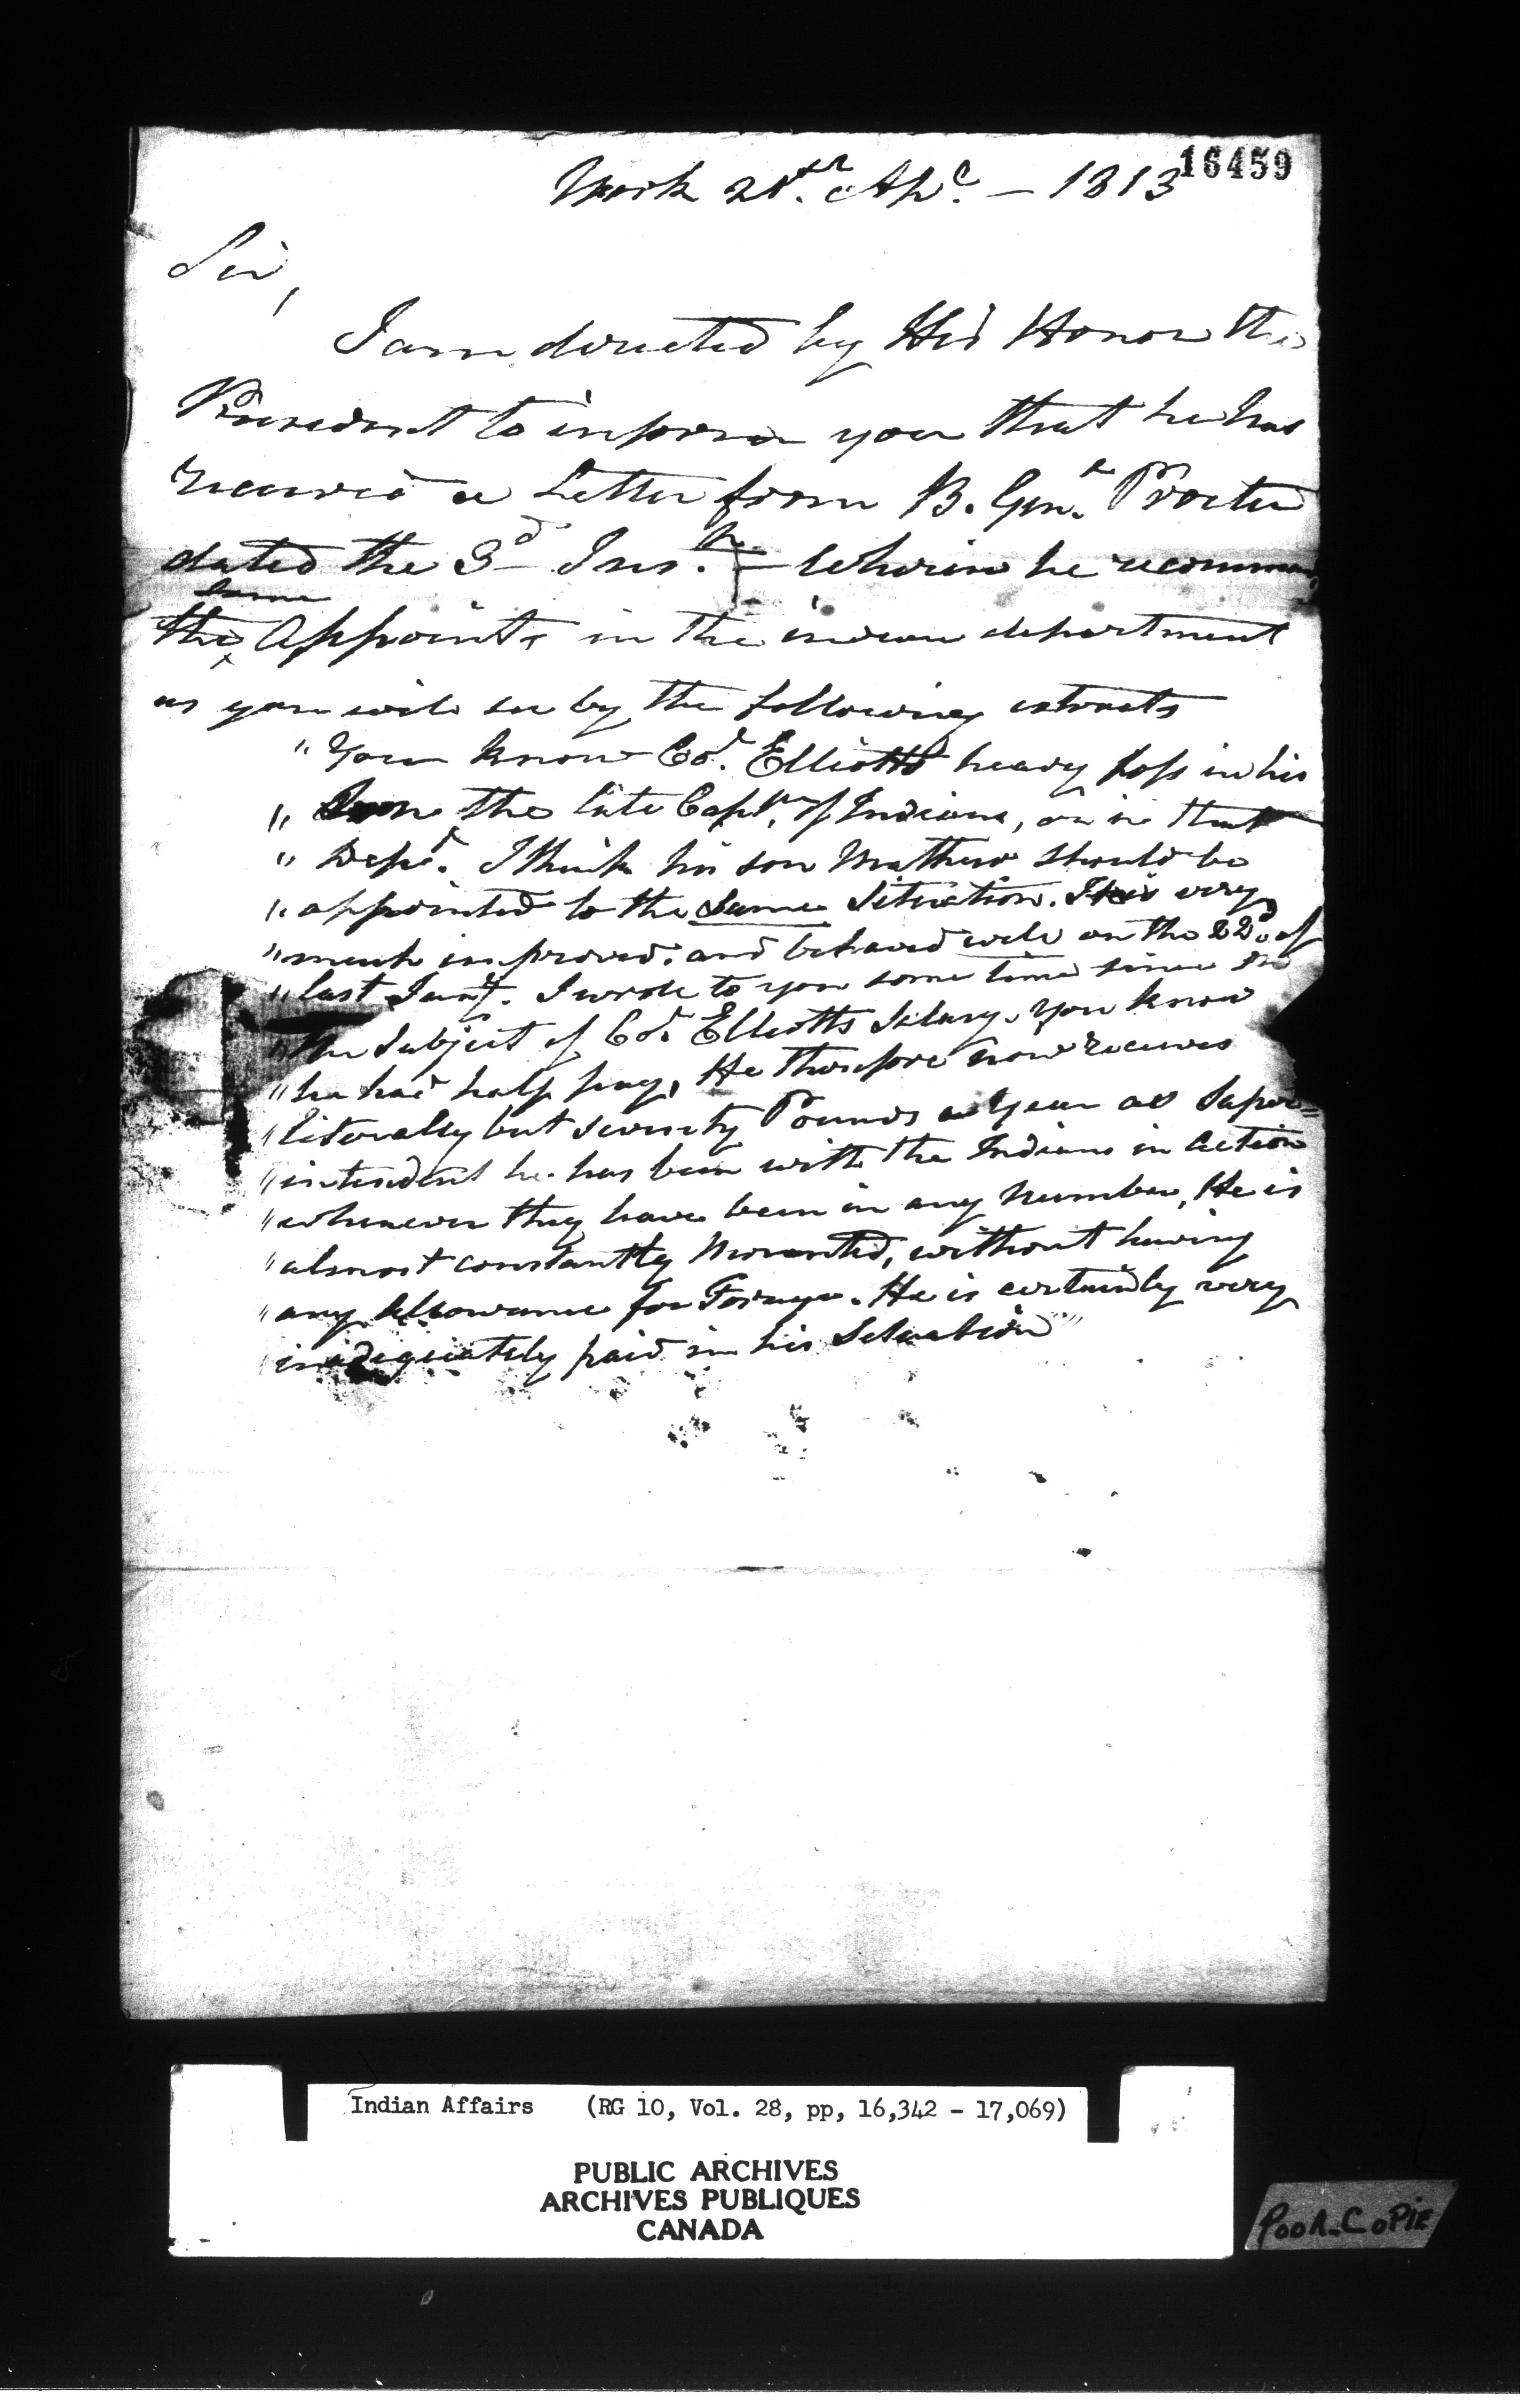 16459
York 21st. Apl. — 1813
Sir,
I am directed by His Honor the
President to inform you that he has
received a Letter from B. Genl. Procter
dated the 3d Inst. — Wherein he recommen
same
the Appoints in the indian department
as you will see by the following extracts
"You know Col. Elliotts heavy loss in his
" Son the late Capt. of Indians, or in that
" Dept. I think his son Mathew should be
" appointed to the same Situation. He is very
" much improved. and behaved well on the 22d. of
" last Jany. I wrote to you some time since on
" the Subject of Col. Elliotts Salary. You know
" he had half pay, He therefore now receives
" literally but seventy Pounds a Year as Super=
" intendent he has been with the Indians in Action
" whenever they have been in any number, He is
" almost constantly Mounted, without having
" any Allowance for Forage. He is certainly very
" inadequately paid in his Situation"
Indian Affairs (RG 10, Vol. 28, pp, 16,342 - 17,069)
PUBLIC ARCHIVES
ARCHIVES PUBLIQUES
CANADA
POOR-COPIE